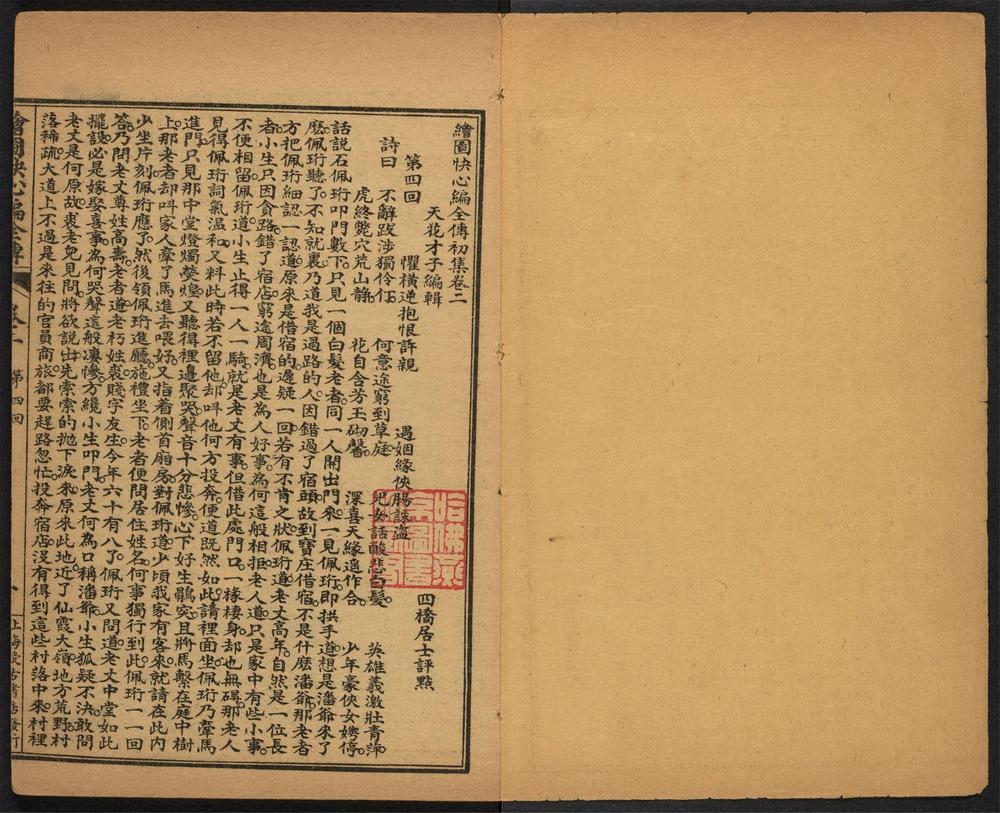 繪圖快心編全傳初集卷二
天花才子編輯　四橋居士評點
第四回　懼橫逆抱恨許親　遇姻緣俠腸誅盜
詩曰　不辭跋涉獨伶仃　何意途窮到草庭　兒女話酸悲白髮　英雄義激壯青萍
虎終斃穴荒山靜　花自含芳玉砌馨　深喜天緣遙作合　少年豪俠女娉停
話說石佩珩叩門數下只見一個白髮老者同一人開出門來一見佩珩即拱手道想是潘爺來了
麼佩珩聽了不知就裏乃道我是過路的人因錯過了宿頭故到寶庄借宿不是什麼潘爺那老者
方把佩珩細認一認道原來是借宿的遲疑一回若有不肯之狀佩珩道老丈高年自然是一位長
者小生只因貪路錯了宿店窮途周濟也是為人好事為何這般相拒老人道只是家中有些小事
不便相留佩珩道小生止得一人一騎就是老丈有事但借此處門口一椽棲身却也無碍那老人
見得佩珩詞氣溫和又料此時若不留他却呌他何方投奔便道既然如此請裡面坐佩珩乃牽馬
進門只見那中堂燈燭熒煌又聽得裡邊聚哭聲音十分悲慘心下好生鶻突且將馬繫在庭中樹
上那老者却呌家人牽了馬進去喂好又指着側首廂房對佩珩道少頃我家有客來就請在此內
少坐片刻佩珩應了然後領佩珩進廳施禮坐下老者便問居住姓名何事獨行到此佩珩一一回
答乃問老丈尊姓高壽老者道老朽姓裘賤字友生今年六十有八了佩珩又問道老丈中堂如此
擺設必是嫁娶喜事為何哭聲這般凄慘方纔小生叩門老丈何為口稱潘爺小生狐疑不決敢問
老丈是何原故裘老兒見問將欲說出先索索的拋下淚來原來此地近了仙霞大嶺地方荒野村
落稀疏大道上不過是來往的官員商旅都要趕路忽忙投奔宿店沒有得到這些村落中來村裡
繪圖快心編全傳　卷二　第四回　一　上海受古書店發行
哈佛燕
京圖書